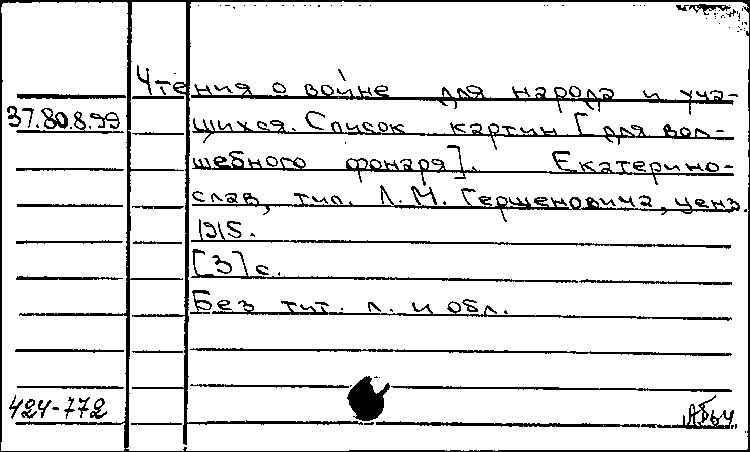 Чтения о войне для народа и уча-
37.80.8.99 щихся. Список картин [для вол-
шебного фонаря]. Екатерино-
слав, тип. Л. М. Гершеновича, ценз.
1915.
[3] с.
Без тит. л. и обл.
424-772